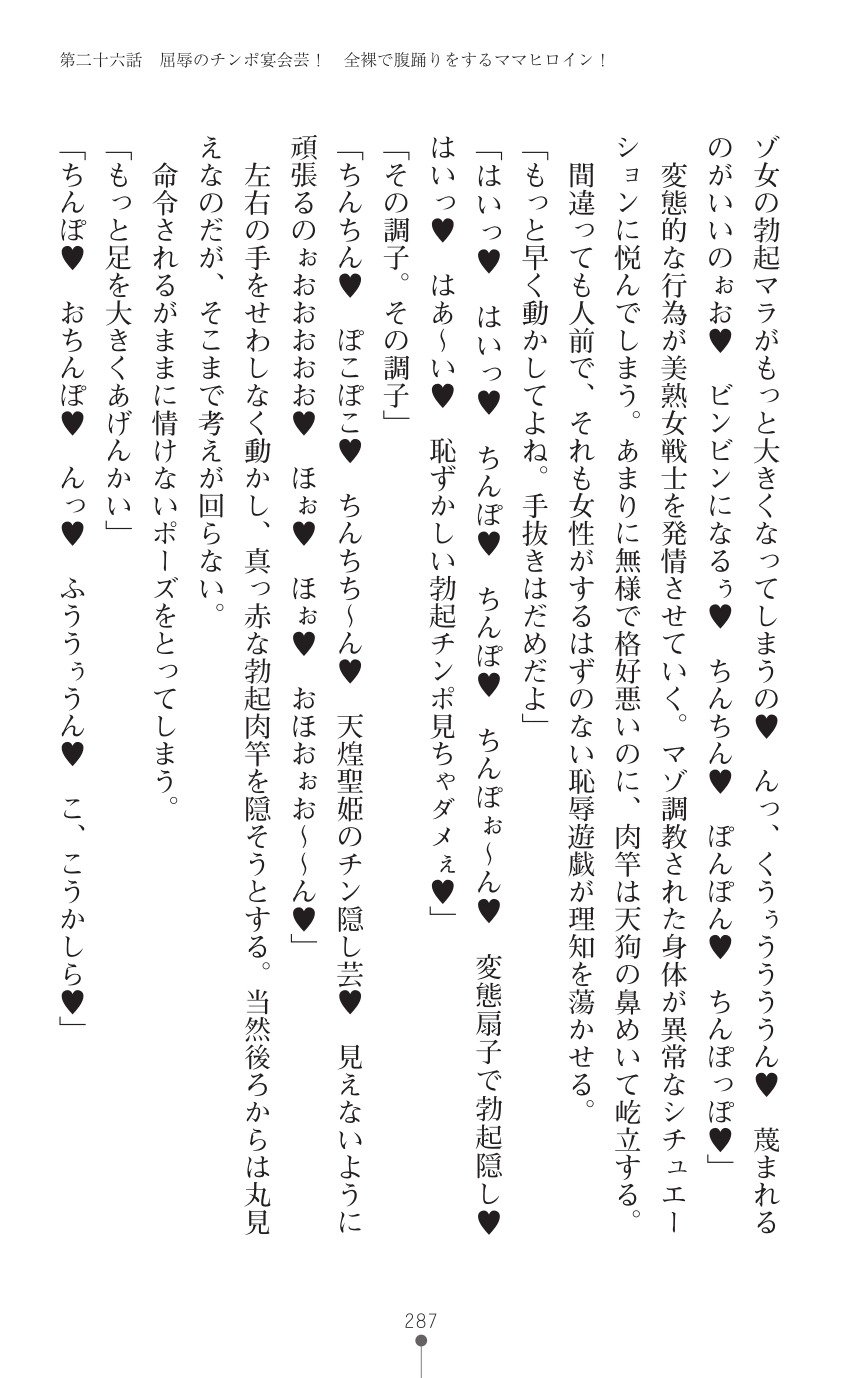 第二十六話　屈辱のチンポ宴会芸！　全裸で腹踊りをするママヒロイン！
ゾ女の勃起マラがもっと大きくなってしまうの♥　んっ、くうぅぅうううん♥　蔑まれる
のがいいのぉお♥　ビンビンになるぅ♥　ちんちん♥　ぽんぽん♥　ちんぽっぽ♥」
　変態的な行為が美熟女戦士を発情させていく。マゾ調教された身体が異常なシチュエー
ションに悦んでしまう。あまりに無様で格好悪いのに、肉竿は天狗の鼻めいて屹立する。
　間違っても人前で、それも女性がするはずのない恥辱遊戯が理知を蕩かせる。
「もっと早く動かしてよね。手抜きはだめだよ」
「はいっ♥　はいっ♥　ちんぽ♥　ちんぽ♥　ちんぽぉ～ん♥　変態扇子で勃起隠し♥
はいっ♥　はあ～い♥　恥ずかしい勃起チンポ見ちゃダメぇ♥」
「その調子。その調子」
「ちんちん♥　ぽこぽこ♥　ちんちち～ん♥　天煌聖姫のチン隠し芸♥　見えないように
頑張るのぉおおおおお♥　ほぉ♥　ほぉ♥　おほおぉお～～ん♥」
　左右の手をせわしなく動かし、真っ赤な勃起肉竿を隠そうとする。当然後ろからは丸見
えなのだが、そこまで考えが回らない。
　命令されるがままに情けないポーズをとってしまう。
「もっと足を大きくあげんかい」
「ちんぽ♥　おちんぽ♥　んっ♥　ふううぅうん♥　こ、こうかしら♥」
287